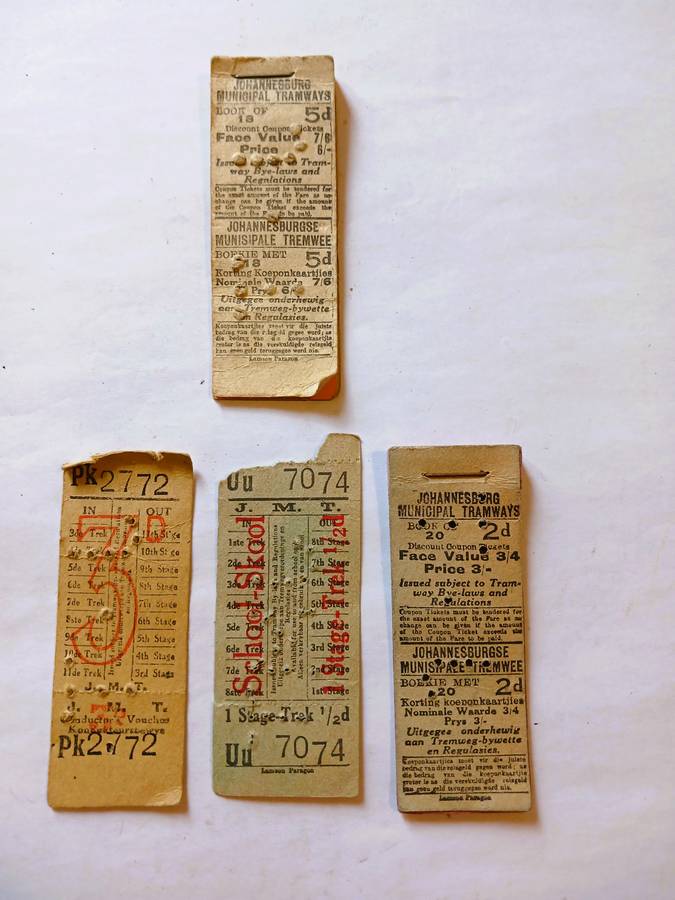 JOHANNESBURG
MUNICIPAL TRAMWAYS
BOOK OF 5d
18
Discount Coupon Tickets
Face Value 7/6
Price 6/-
Issued subject to Tram-
way Bye-laws and
Regulations
Coupon Tickets must be tendered for
the exact amount of the Fare as no
change can be given if the amount
of the Coupon Ticket exceeds the
amount of the Fare to be paid.
JOHANNESBURGSE
MUNISIPALE TREMWEE
BOEKIE MET 5d
18
Korting Koeponkaartjies
Nominale Waarde 7/6
Prys 6/-
Uitgegee onderhewig
aan Tremweg-bywette
en Regulasies.
Koeponkaartjies moet vir die juiste
bedrag van die reisgeld gegee word; as
die bedrag van die koeponkaartjie
groter is as die verskuldigde reisgeld
kan geen geld teruggegee word nie.
Lamson Paragon
Pk2772
IN OUT
3de Trek 11th Stage
10th Stage
5de Trek 9th Stage
6de Trek 8th Stage
7de Trek 7th Stage
8ste Trek 6th Stage
9de Trek 5th Stage
10de Trek 4th Stage
11de Trek 3rd Stage
J. M. T.
J. M. T.
Conductor Voucher
Pk2772
Uu 7074
J. M. T.
IN OUT
1ste Trek 8th Stage
2de Trek 7th Stage
3de Trek 6th Stage
4de Trek 5th Stage
5de Trek 4th Stage
6de Trek 3rd Stage
7de Trek 2nd Stage
8ste Trek 1st Stage
School-Skool
1 Stage-Trek 1/2d
Issued subject to Tramway Bye-laws and Regulations
1 Stage-Trek 1/2d
Uu 7074
Lamson Paragon
JOHANNESBURG
MUNICIPAL TRAMWAYS
BOOK OF 2d
20
Discount Coupon Tickets
Face Value 3/4
Price 3/-
Issued subject to Tram-
way Bye-laws and
Regulations
Coupon Tickets must be tendered for
the exact amount of the Fare as no
change can be given if the amount
of the Coupon Ticket exceeds the
amount of the Fare to be paid.
JOHANNESBURGSE
MUNISIPALE TREMWEE
BOEKIE MET 2d
20
Korting koeponkaartjies
Nominale Waarde 3/4
Prys 3/-
Uitgegee onderhewig
aan Tremweg-bywette
en Regulasies.
Koeponkaartjies moet vir die juiste
bedrag van die reisgeld gegee word; as
die bedrag van die koeponkaartjie
groter is as die verskuldigde reisgeld
kan geen geld teruggegee word nie.
Lamson Paragon